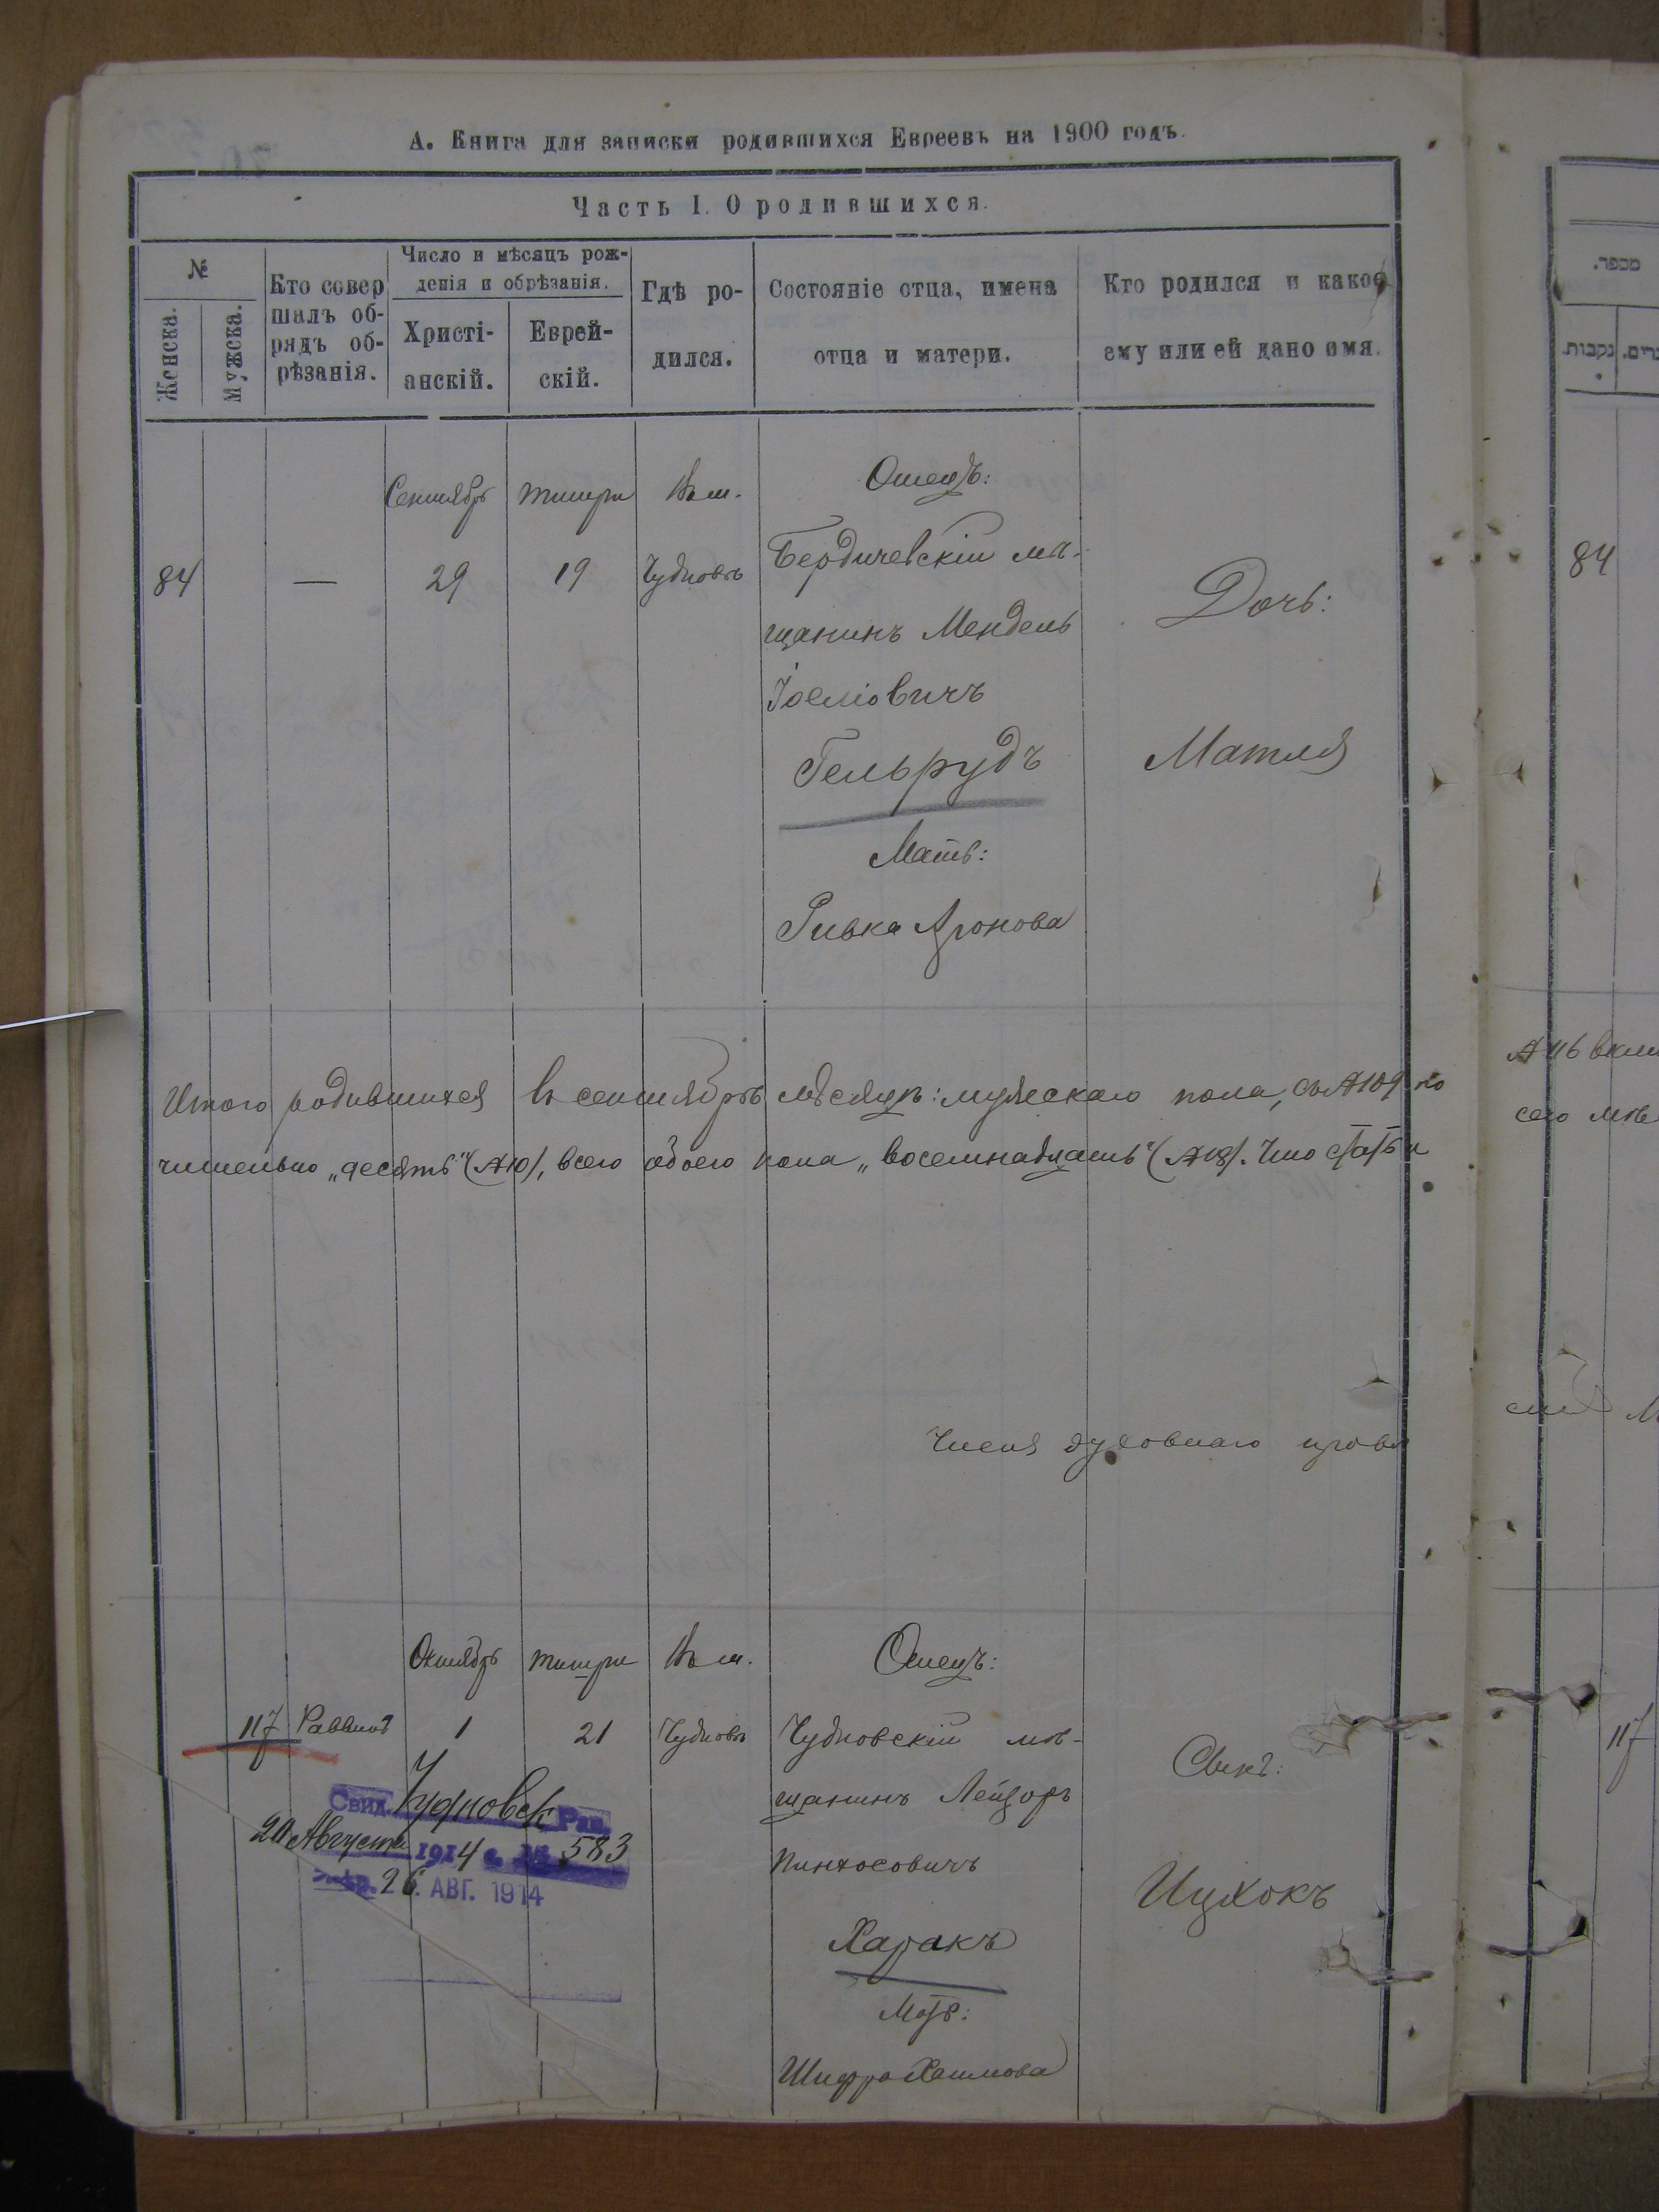 А. Книга для записки родившихся Евреевъ на 1900 годъ.
Часть I. О родившихся.
№
Женска.
Мужска.
Кто совер
шалъ об-
рядъ об-
рѣзанія.
Число и мѣсяцъ рож-
денія и обрѣзанія.
Христі-
анскій.
Еврей-
скій.
Гдѣ ро-
дился.
Состояніе отца, имена
отца и матери.
Кто родился и какое
ему или ей дано имя.
מספר.
נקבות.
Сентябрь Тишри Въ м. Отецъ:
84 — 29 19 Чудновъ Бердичевскій мѣ-
щанинъ Мендель
Іосіовичъ
Гельрудъ
Мать:
Ривка Аронова
Дочь:
Матля
84
Итого родившихся въ сентябрѣ мѣсяцѣ: мужескаго пола, съ №109 по
№116 вклю
чительно „десять" (№10), всего обоего пола „восемнадцать" (№18). Что
сего
Члены духовнаго
Октябрь Тишри Въ м. Отецъ:
117 Раввинъ 1 21 Чудновъ Чудновскій мѣ-
щанинъ Лейзоръ
Пинхосовичъ
Харакъ
Мать:
Шифра Хаимова
Сынъ:
Ицхокъ
117
Свид. Чудновск Рав.
20 Августа 1914 г. № 583
26 АВГ. 1914